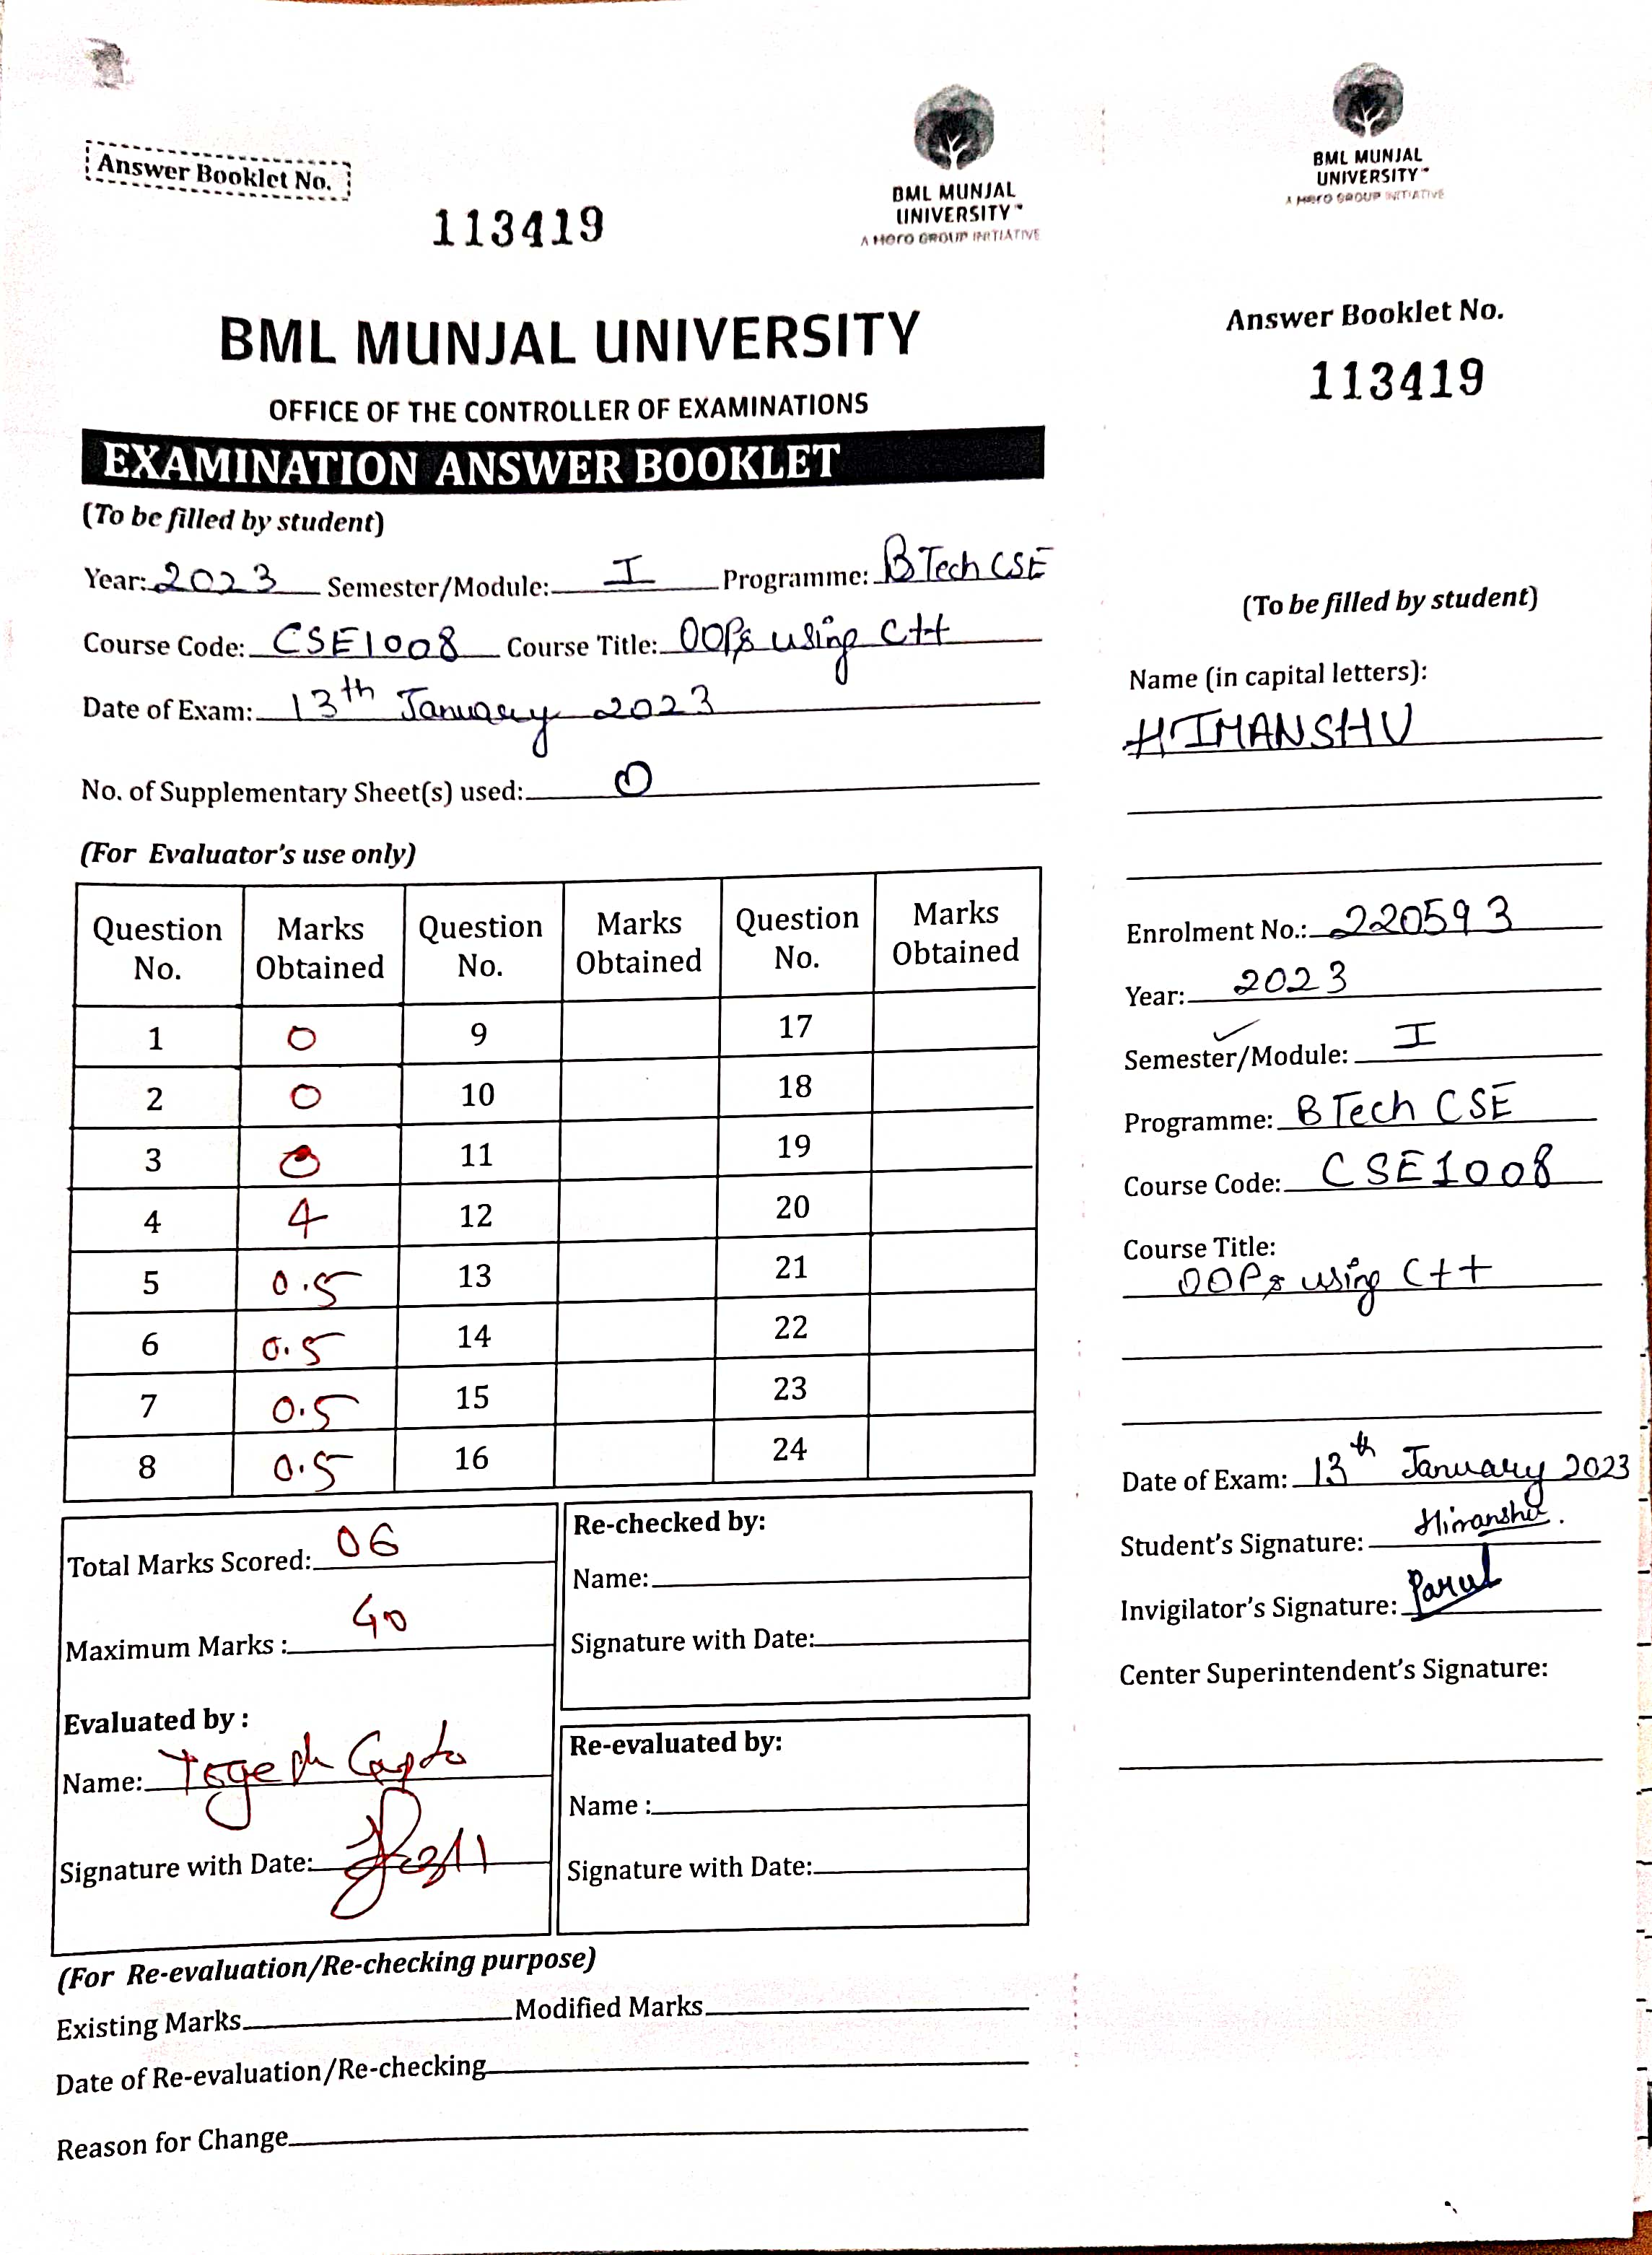 Answer Booklet No.
113419
BML MUNJAL
UNIVERSITY™
A Hero GROUP INITIATIVE
BML MUNJAL UNIVERSITY
OFFICE OF THE CONTROLLER OF EXAMINATIONS
EXAMINATION ANSWER BOOKLET
(To be filled by student)
Year: 2023 Semester/Module: I Programme: B Tech CSE
Course Code: CSE1008 Course Title: OOPs using C++
Date of Exam: 13th January 2023
No. of Supplementary Sheet(s) used: 0
(For Evaluator's use only)
Question No. Marks Obtained Question No. Marks Obtained Question No. Marks Obtained
1 0 9 17
2 0 10 18
3 0 11 19
4 4 12 20
5 0.5 13 21
6 0.5 14 22
7 0.5 15 23
8 0.5 16 24
Total Marks Scored: 06
Maximum Marks : 40
Evaluated by :
Name:
Signature with Date:
Re-checked by:
Name:
Signature with Date:
Re-evaluated by:
Name :
Signature with Date:
(For Re-evaluation/Re-checking purpose)
Existing Marks Modified Marks
Date of Re-evaluation/Re-checking
Reason for Change
BML MUNJAL
UNIVERSITY™
A Hero GROUP INITIATIVE
Answer Booklet No.
113419
(To be filled by student)
Name (in capital letters):
HIMANSHU
Enrolment No.: 220593
Year: 2023
Semester/Module: I
Programme: B Tech CSE
Course Code: CSE1008
Course Title:
OOPs using C++
Date of Exam: 13th January 2023
Student's Signature: Himanshu.
Invigilator's Signature: Parul
Center Superintendent's Signature: